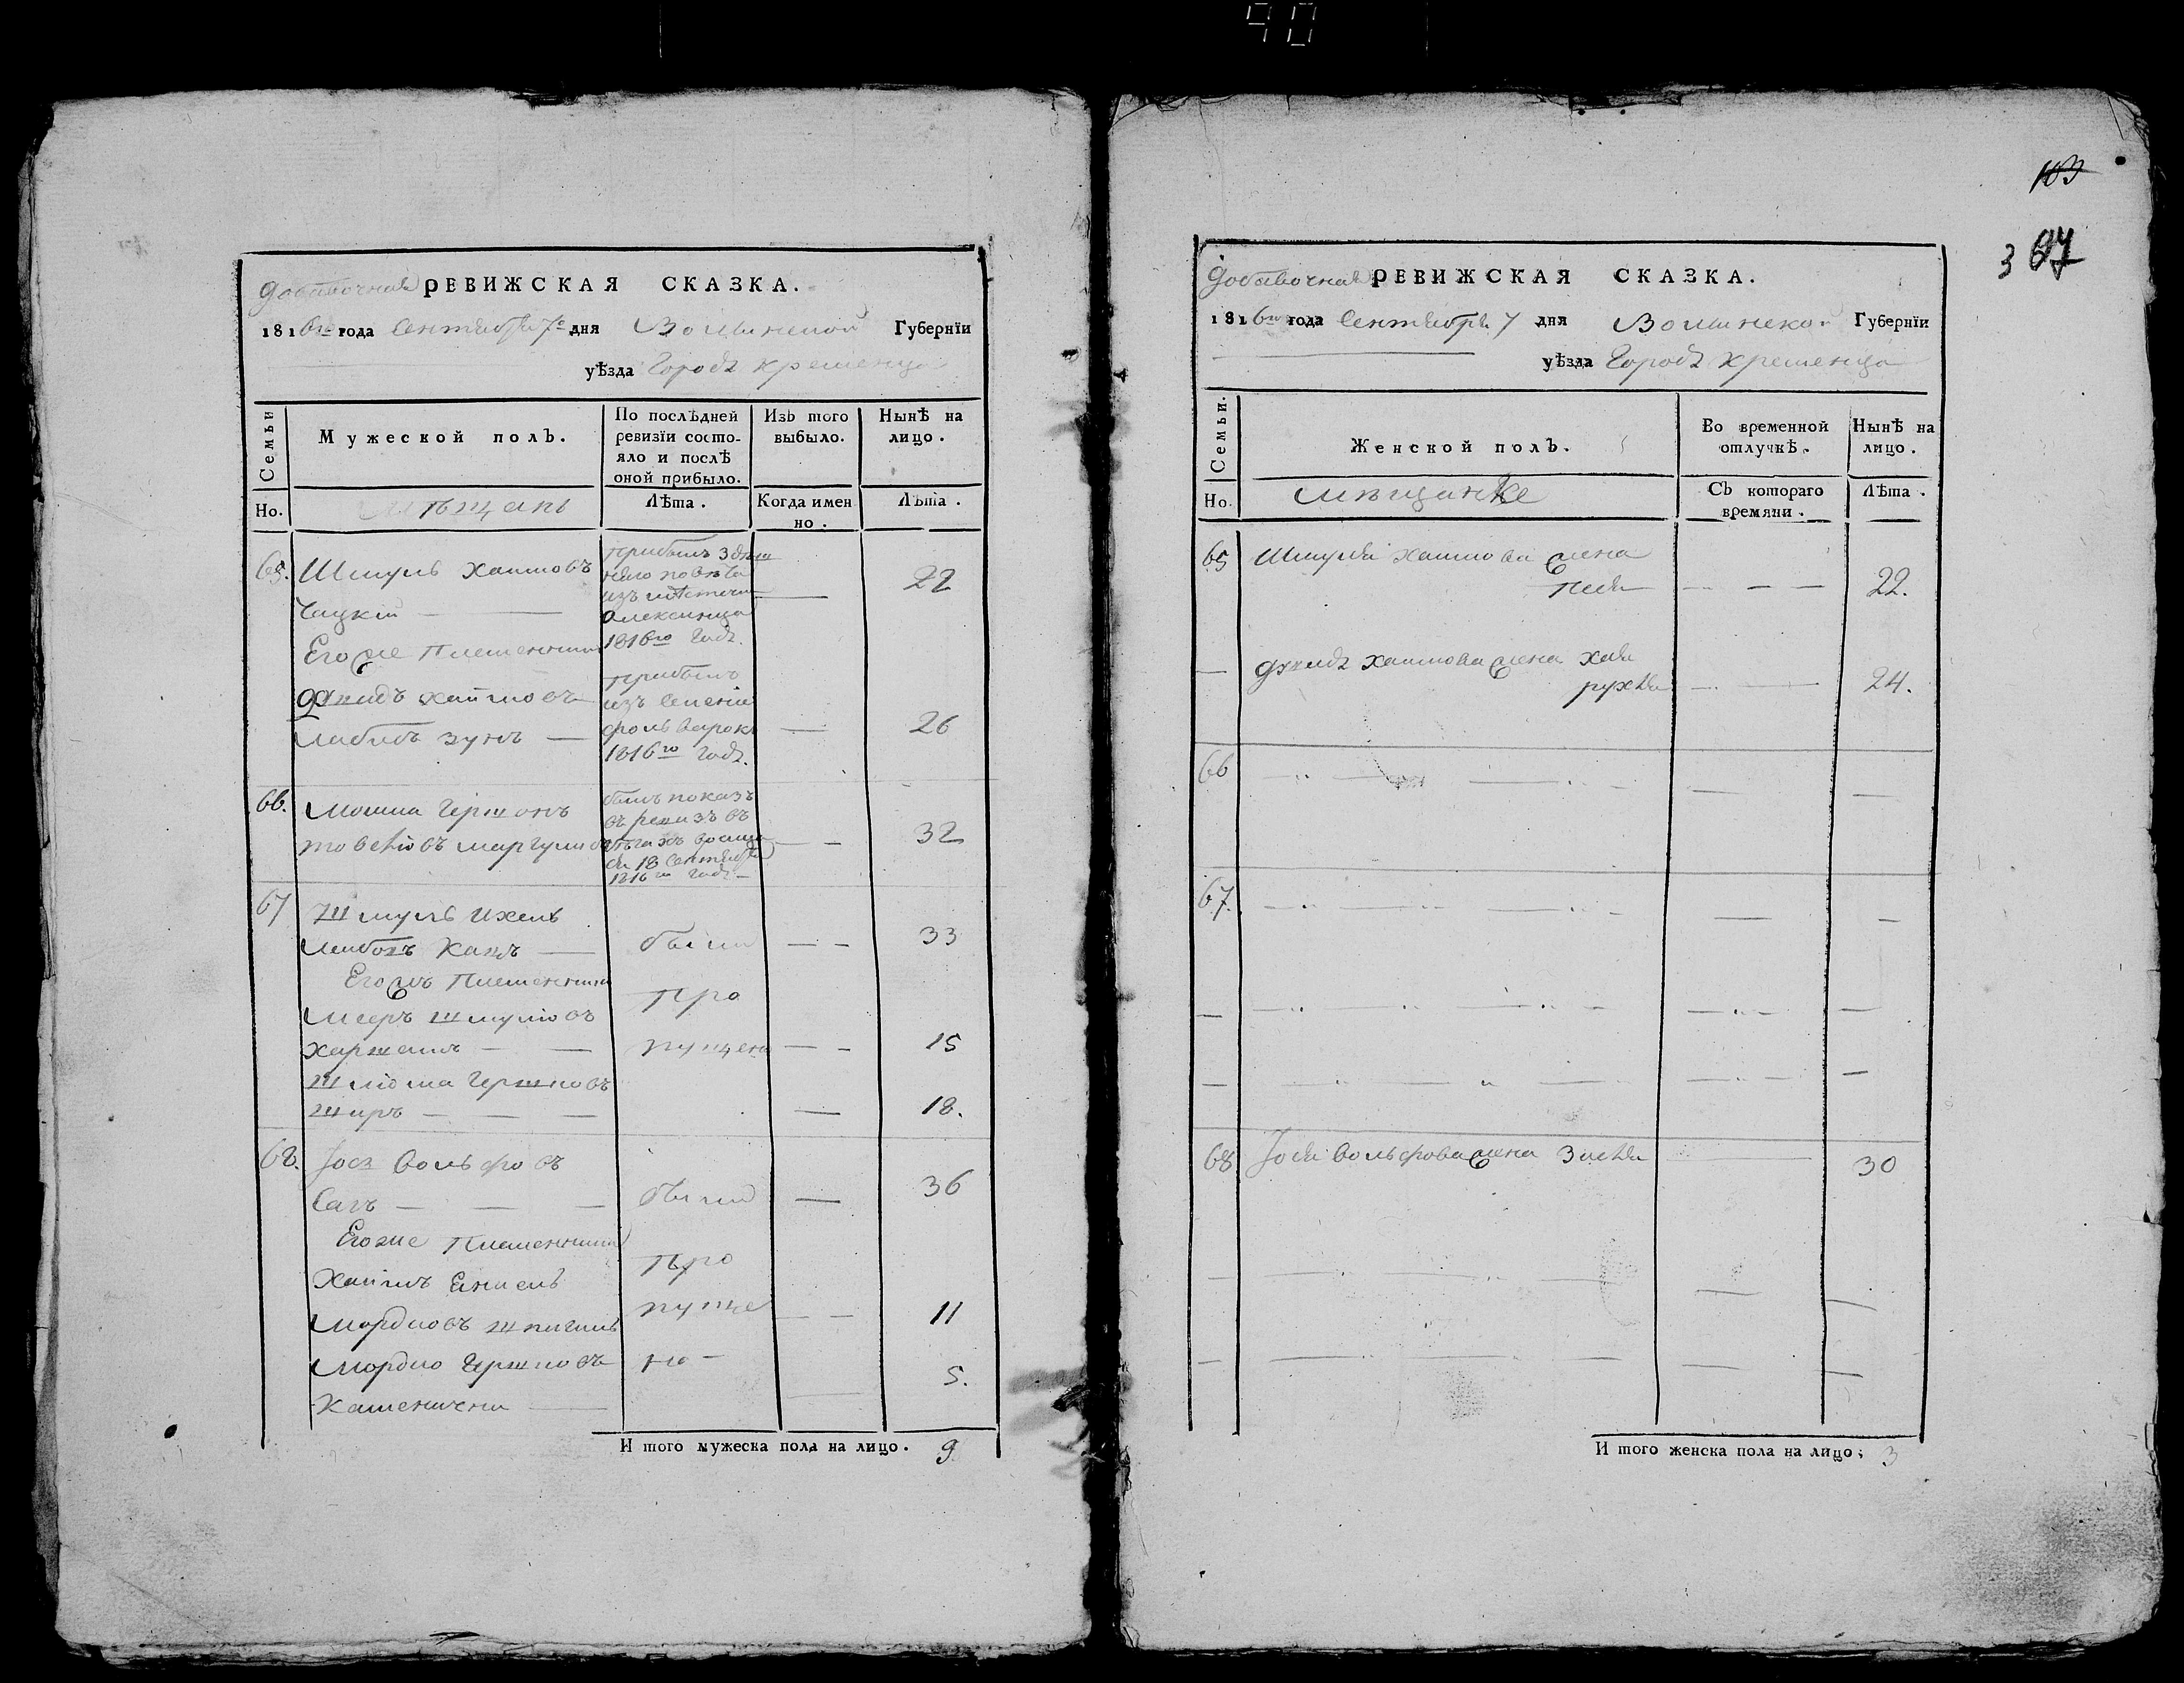 90
Добавочная РЕВИЖСКАЯ СКАЗКА.
1816го года Сентября 7го дня Волынской Губернїи
уѣзда Города Кременца
Семьи
Мужеской полъ.
По послѣдней ревизїи состо-
яло и послѣ оной прибыло.
Изъ того выбыло.
Нынѣ на лицо.
Но.
мѣщане
Лѣта.
Когда имен
но.
Лѣта.
65. Шмуль Хаимовъ
Чацкий
прибылъ здѣш
няго повѣта
изъ мѣстечка
Олексинца
1816го года.
22
Егоже Племенникъ
Дувидъ Хаимовъ
прибылъ
из
1816го года.
26
66. Мошка Гершонъ
былъ показ
въ ревизъ въ
18 Сентября
1816го года
32
67 Шмуль Ихель
Лейбовъ Кацъ
были
33
Егожъ Племенники
Мееръ Шмулiовъ
Про
пущено
15
Шлiома Гершковъ
18.
68. Iось Вольфовъ
Сагъ
были
36
Егоже Племенники
Хаимъ
Мордковъ Шпигель
Про
пуще
но
11
Мордко Гершковъ
5.
И того мужеска пола на лицо. 9
103
3 97
Добавочная РЕВИЖСКАЯ СКАЗКА.
1816го года Сентября 7 дня Волынской Губернїи
уѣзда Города Кременца
Семьи.
Женской полъ.
Во временной отлучкѣ.
Нынѣ на лицо.
Но.
мѣщанке
Съ котораго времяни.
Лѣта.
65 Шмуля Хаимова жена
Песя
22.
Дувида Хаимова жена Хая
рухля
24.
66
67.
68 Iося Вольфова жена Злата
30
И того женска пола на лицо; 3